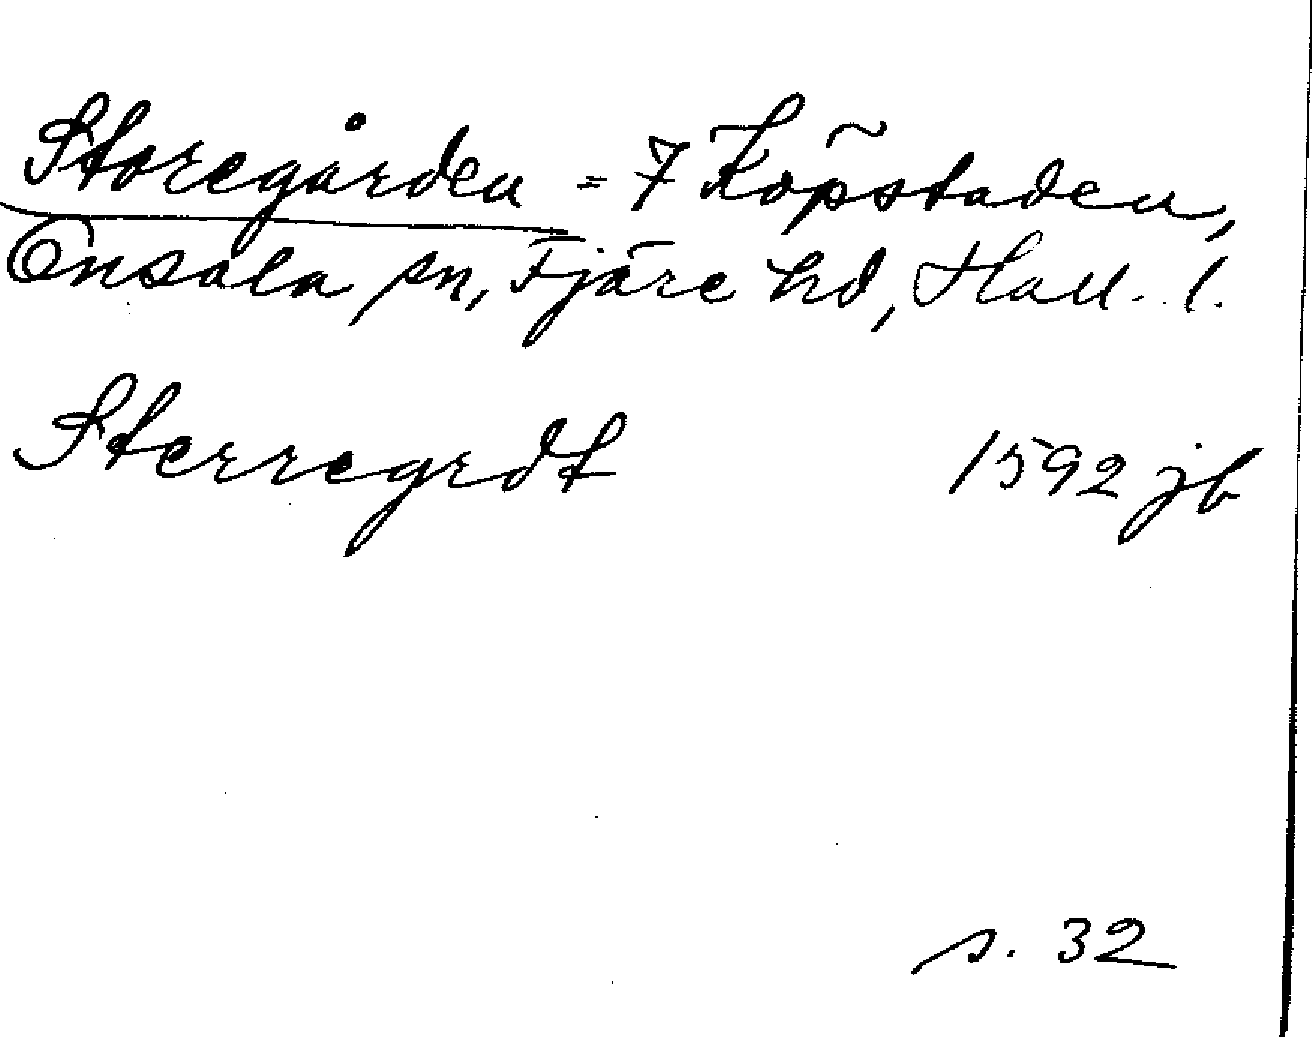 Storegården = 7 Köpstaden,
Onsala sn, Fjäre hd, Hall. l.
Sterregrdt 1592 jb
s. 32